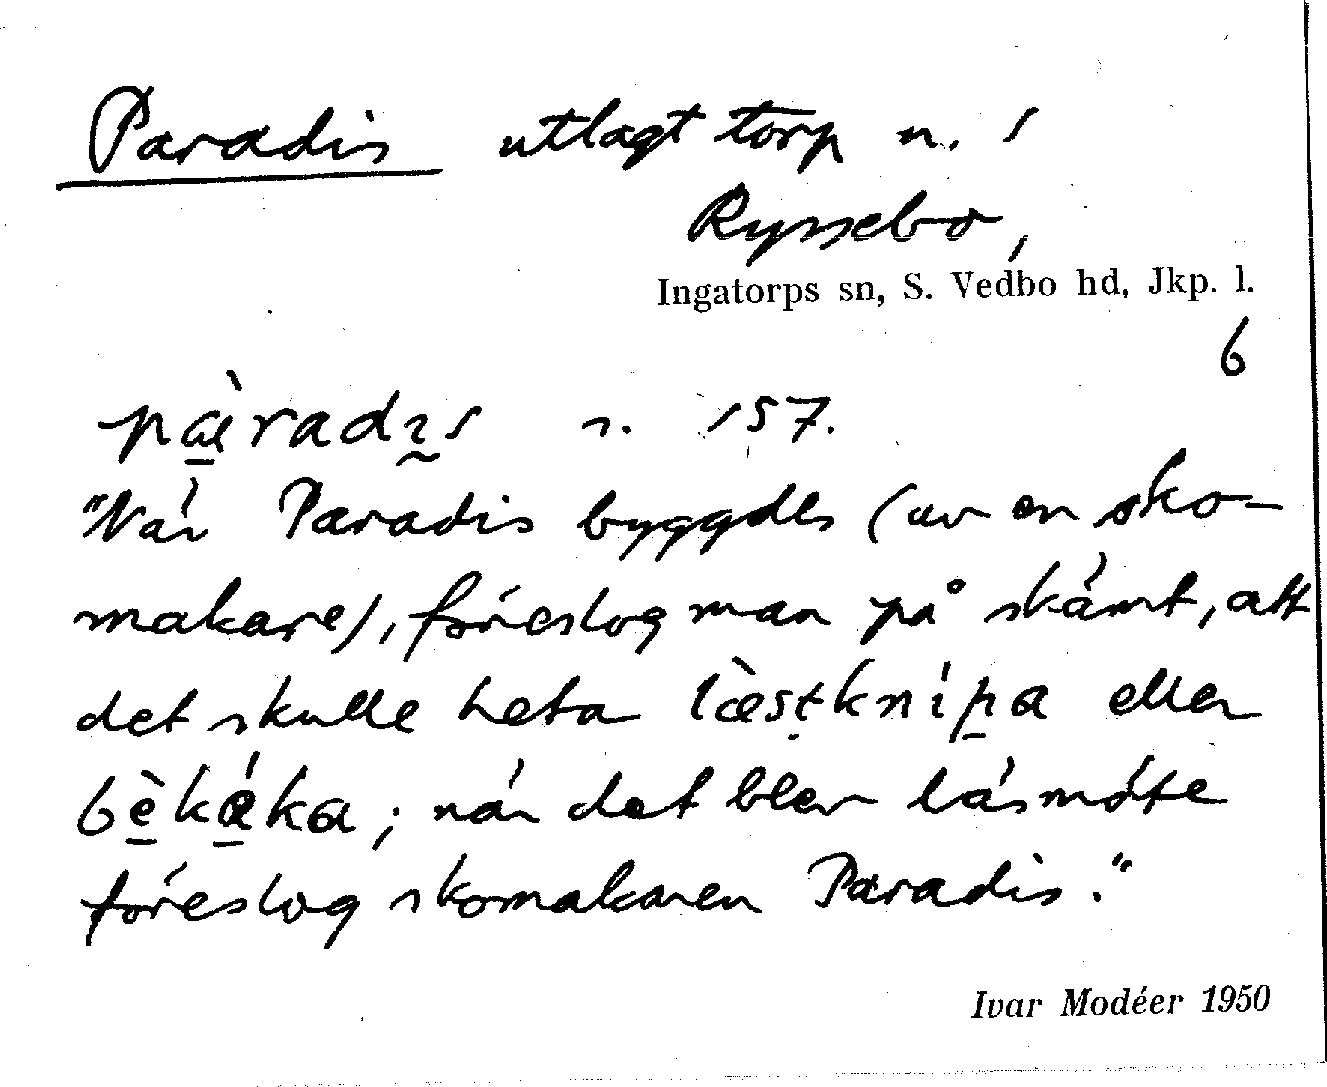 Paradis utlagt torp n. 1
Ryssebo,
Ingatorps sn, S. Vedbo hd, Jkp. l.
6
pæ̀radıs s. 157.
"När Paradis byggdes (av en sko-
makare), föreslog man på skämt, att
det skulle heta læ̀stknípa eller
bèkáka; när det blev läsmöte
föreslog skomakaren Paradis."
Ivar Modéer 1950